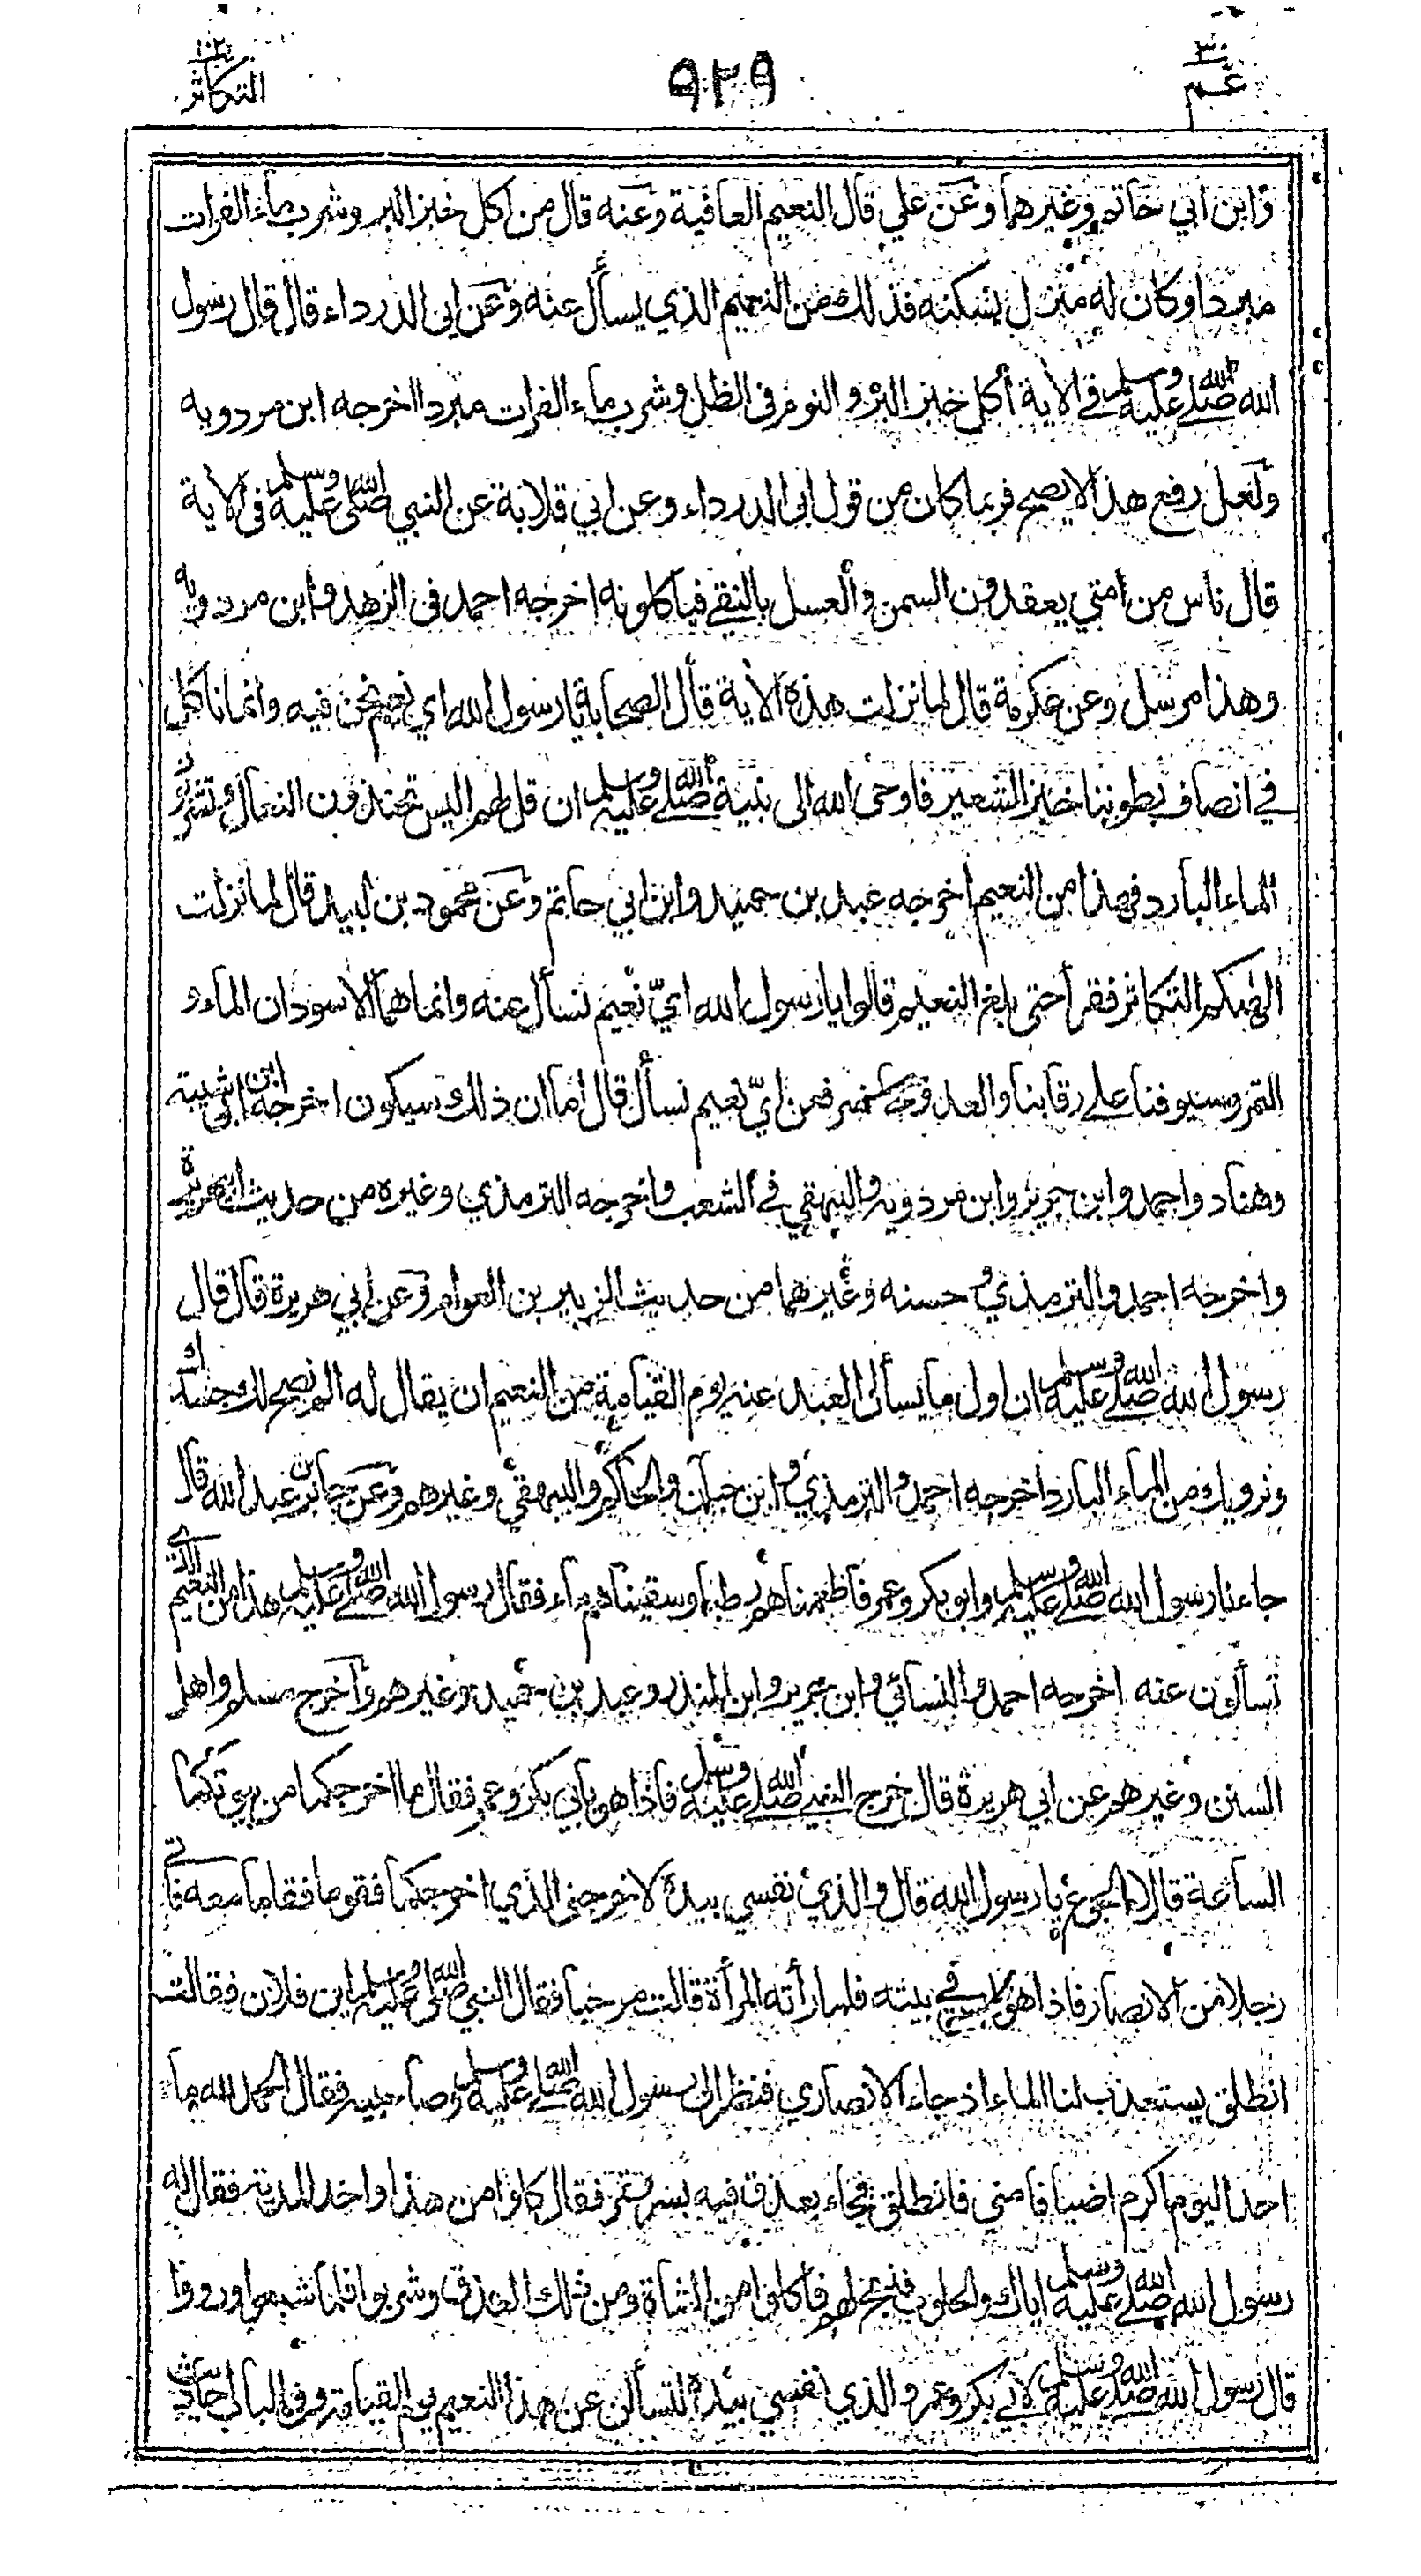 ٣٠
عم
٩٢٩
١٠٢
التكاثر
وابن ابي حاتم وغيرهما وعن علي قال النعيم العافية وعنه قال من اكل خبز البر وشرب ماء الفرات
مبردا وكان له منزل يسكنه فذلك من النعيم الذي يسأل عنه وعن ابى الدرداء قال قال رسول
الله صلى الله عليه وسلم في الأية أكل خبز البر والنوم فى الظل وشرب ماء الفرات مبردا اخرجه ابن مردويه
ولعل رفع هذا لا يصح فربما كان من قول ابى الدرداء وعن ابي قلابة عن النبي صلى الله عليه وسلم فى الأية
قال ناس من امتي يعقدون السمن والعسل بالنقي فيأكلونه اخرجه احمد فى الزهد وابن مردويه
وهذا مرسل وعن عكرمة قال لما نزلت هذه الأية قال الصحابة يا رسول الله اي نعيم نحن فيه وانما نأكل
في انصاف بطوننا خبز الشعير فاوحى الله الى نبيه صلى الله عليه وسلم ان قل لهم اليس تحتذون النعال وتشربون
الماء البارد فهذا من النعيم اخرجه عبد بن حميد وابن ابي حاتم وعن محمود بن لبيد قال لما نزلت
الهٰىكم التكاثر فقرأ حتى بلغ النعيم قالوا يا رسول الله ايّ نعيم نسأل عنه وانما هما الاسودان الماء و
التمر وسيوفنا على رقابنا والعدو حاضر فعن ايّ نعيم نسأل قال اما ان ذلك سيكون اخرجه ابن ابى شيبة
وهناد واحمد وابن جرير وابن مردويه والبيهقي في الشعب واخرجه الترمذي وغيره من حديث ابي هريرة
واخرجه احمد والترمذي وحسنه وغيرهما من حديث الزبير بن العوام وعن ابي هريرة قال قال
رسول الله صلى الله عليه وسلم ان اول ما يسأل العبد عنه يوم القيامة من النعيم ان يقال له الم نصح لك جسدك
ونرويك من الماء البارد اخرجه احمد والترمذي وابن حبان والحاكم والبيهقي وغيرهم وعن جابر بن عبد الله قال
جاءنا رسول الله صلى الله عليه وسلم وابو بكر وعمر فاطعمناهم رطبا وسقيناهم ماء فقال رسول الله صلى الله عليه وسلم هذا من النعيم الذي
تسألون عنه اخرجه احمد والنسائي وابن جرير وابن المنذر وعبد بن حميد وغيرهم وأخرج مسلم واهل
السنن وغيرهم عن ابي هريرة قال خرج النبي صلى الله عليه وسلم فاذا هو بأبي بكر وعمر فقال ما اخرجكما من بيوتكما
الساعة قالا الجوع يا رسول الله قال والذي نفسي بيده لاخرجني الذي اخرجكما فقوما فقاما معه فأتى
رجلا من الانصار فاذا هو ليس في بيته فلما رأته المرأة قالت مرحبا فقال النبي صلى الله عليه وسلم اين فلان فقالت
انطلق يستعذب لنا الماء اذ جاء الانصاري فنظر الى رسول الله صلى الله عليه وسلم وصاحبيه فقال الحمد لله ما
احد اليوم اكرم اضيافا مني فانطلق فجاء بعذق فيه بسر وتمر فقال كلوا من هذا واخذ المدية فقال له
رسول الله صلى الله عليه وسلم اياك والحلوب فذبح لهم فأكلوا من الشاة ومن ذلك العذق وشربوا فلما شبعوا ورووا
قال رسول الله صلى الله عليه وسلم لابي بكر وعمر والذي نفسي بيده لتسألن عن هذا النعيم يوم القيامة وفى الباب احاديث